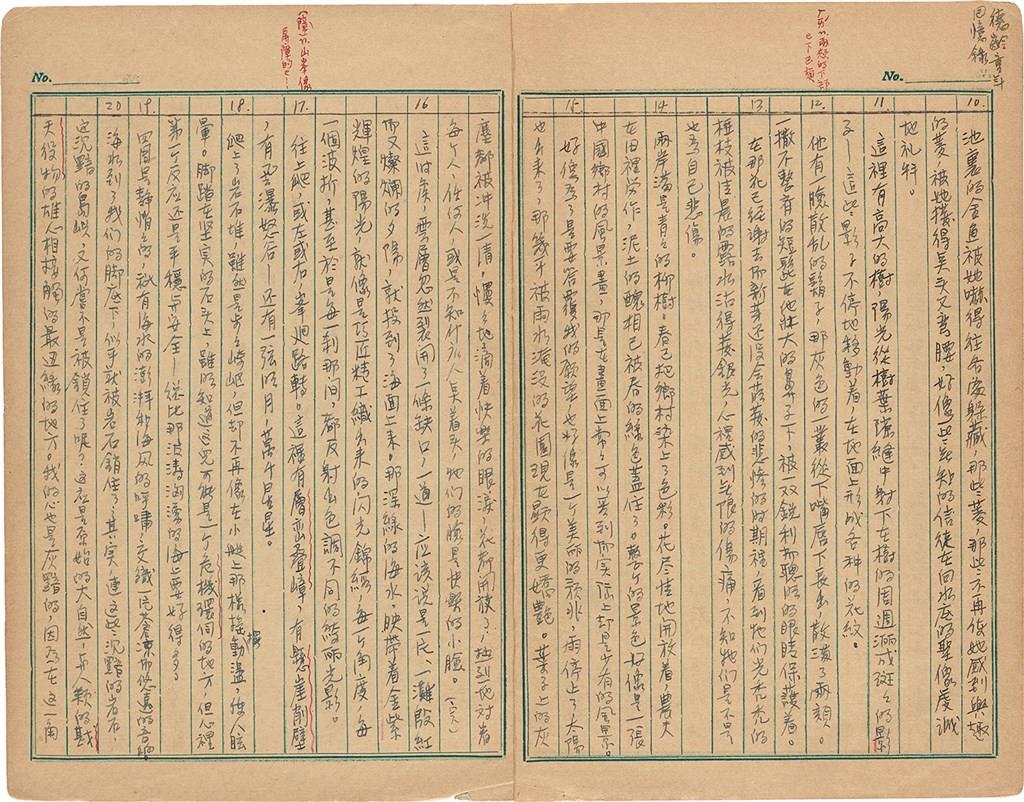 回憶錄
No.
10.
池裏的金魚被她嚇得往各處躲藏,那些菱,那些不再使她感到興趣
的菱,被她攪得昊头又弯腰,好像些無知的信徒在向水底的聖像虔誠
地礼拜。
11.
這裡有高大的樹,陽光從樹葉隙縫中射下在樹的周週洒成斑々的影
子,這些影子不停地移動着,在地面上形成各种的花紋。
12.
他有一臉散乱的鬍子,那灰色的一叢從下嘴唇下長出,散滿了兩頰。
一撇不整齊的短髭在他壯大的鼻子下,被一双銳利和聰明的眼睛保護着。
13.
在那花已經謝去而新芽还沒含蓓蕾的悲慘的时期裡,看到牠们光禿禿的
椏枝被清晨的露水沾得發銀光,心裡感到無限的傷痛,不知牠们是不是
也為自己悲傷。
14.
兩岸滿是青々的柳樹。春已把鄉村染上了色彩。花尽情地開放着,農夫
在田裡学作,泥土的醜相已被春的綠色盖住了。整个的景色好像是一張
中國鄉村的風景畫,那是在畫面上常々可以看到而实际上却是少有的風景。
15.
好像為了是要答覆我的願望,也好像是一个美丽的預兆,雨停止了,太陽
也出来了,那幾乎被雨水淹没的花園現在顯得更嬌艷。葉子上的灰
塵都被冲洗一清,慢々地滴着快樂的眼淚,花都開放了,抽到一地对着
每个人,任何人,或是不知什么人昊着头,牠们的臉是快樂的小臉。
16
這时候,雲層忽然裂開了一條缺口,一道——應该説是一片、一灘殷紅
而又燦爛的夕陽,就投到了海面上来。那深綠的海水,映带着金紫
輝煌的陽光,就像是巧匠精工織出来的閃光錦緞,每一个角度,每
一個波折,甚至於是每一刹那间,都反射出色調不同的綺丽光影。
17.
往上爬,或左或右,峯迴路轉。這裡有層巒叠嶂,有懸崖削壁
,有飛瀑怒石——还有一弦明月,萬千星星。
18.
爬上了岩石堆,雖然是步々崎岖,但却不再像在小艇上那樣摇摆動盪,使人眩
暈。脚踏在坚实的石头上,雖明知道這兒可能是一个危機環伺的地方,但心裡
第一个反应还是平穩与安全——總比那波涛洶湧的海上要好得多。
19.
四周是静悄々的,祗有海水的澎湃和海风的呼嘯,交織一片蒼凉而悠遠的音响。
20
海水到了我们的脚底下,似乎就被岩石鎖住了;其实,連這些沉黯的岩石,
這沉黯的島屿,又何嘗不是被鎖住了呢?這在是原始的大自然,与人類的戡
天役物的雄心相接觸的最边緣的地方。我的心也是灰黯的,因为在這一角
No.